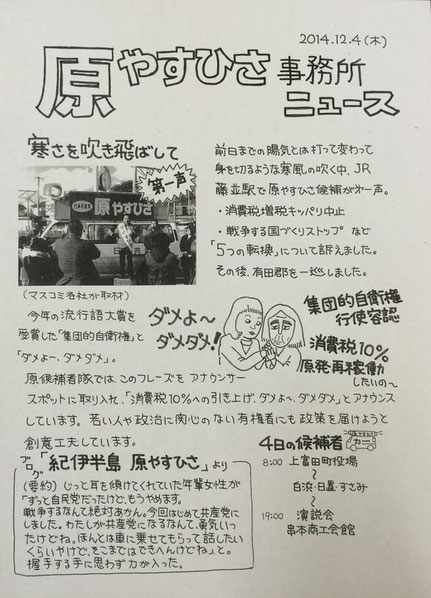 2014.12.4(木)
原やすひさ事務所
ニュース
寒さを吹き飛ばして
第一声
原やすひさ
(マスコミ各社が取材)
前日までの陽気とは打って変わって
身を切るような寒風の吹く中、JR
藤並駅で原やすひさ候補が第一声。
・消費税増税キッパリ中止
・戦争する国づくりストップ など
「5つの転換」について訴えました。
その後、有田郡を一巡しました。
今年の流行語大賞を
受賞した「集団的自衛権」と
「ダメよ〜、ダメダメ」。
ダメよ〜
ダメダメ!
集団的自衛権
行使容認
消費税10%
原発再稼働
したいの〜
原候補者隊では、このフレーズをアナウンサー
スポットに取り入れ、「消費税10%への引き上げ、ダメよ〜、ダメダメ」とアナウンス
しています。若い人や政治に関心のない有権者にも政策を届けようと
創意工夫しています。
ブログ「紀伊半島 原やすひさ」より
(要約)じっと耳を傾けてくれていた年輩女性が
「ずっと自民党だったけど、もうやめます。
戦争するなんて絶対あかん。今回はじめて共産党に
しました。わたしが共産党になるなんて、勇気いっ
たけどね。ほんとは車に乗せてもらって話したい
くらいやけど、そこまではできへんけどね」と。
握手する手に思わず力が入った。
4日の候補者
8:00 上富田町役場
〜
白浜・日置・すさみ
〜
19:00 演説会
串本商工会館